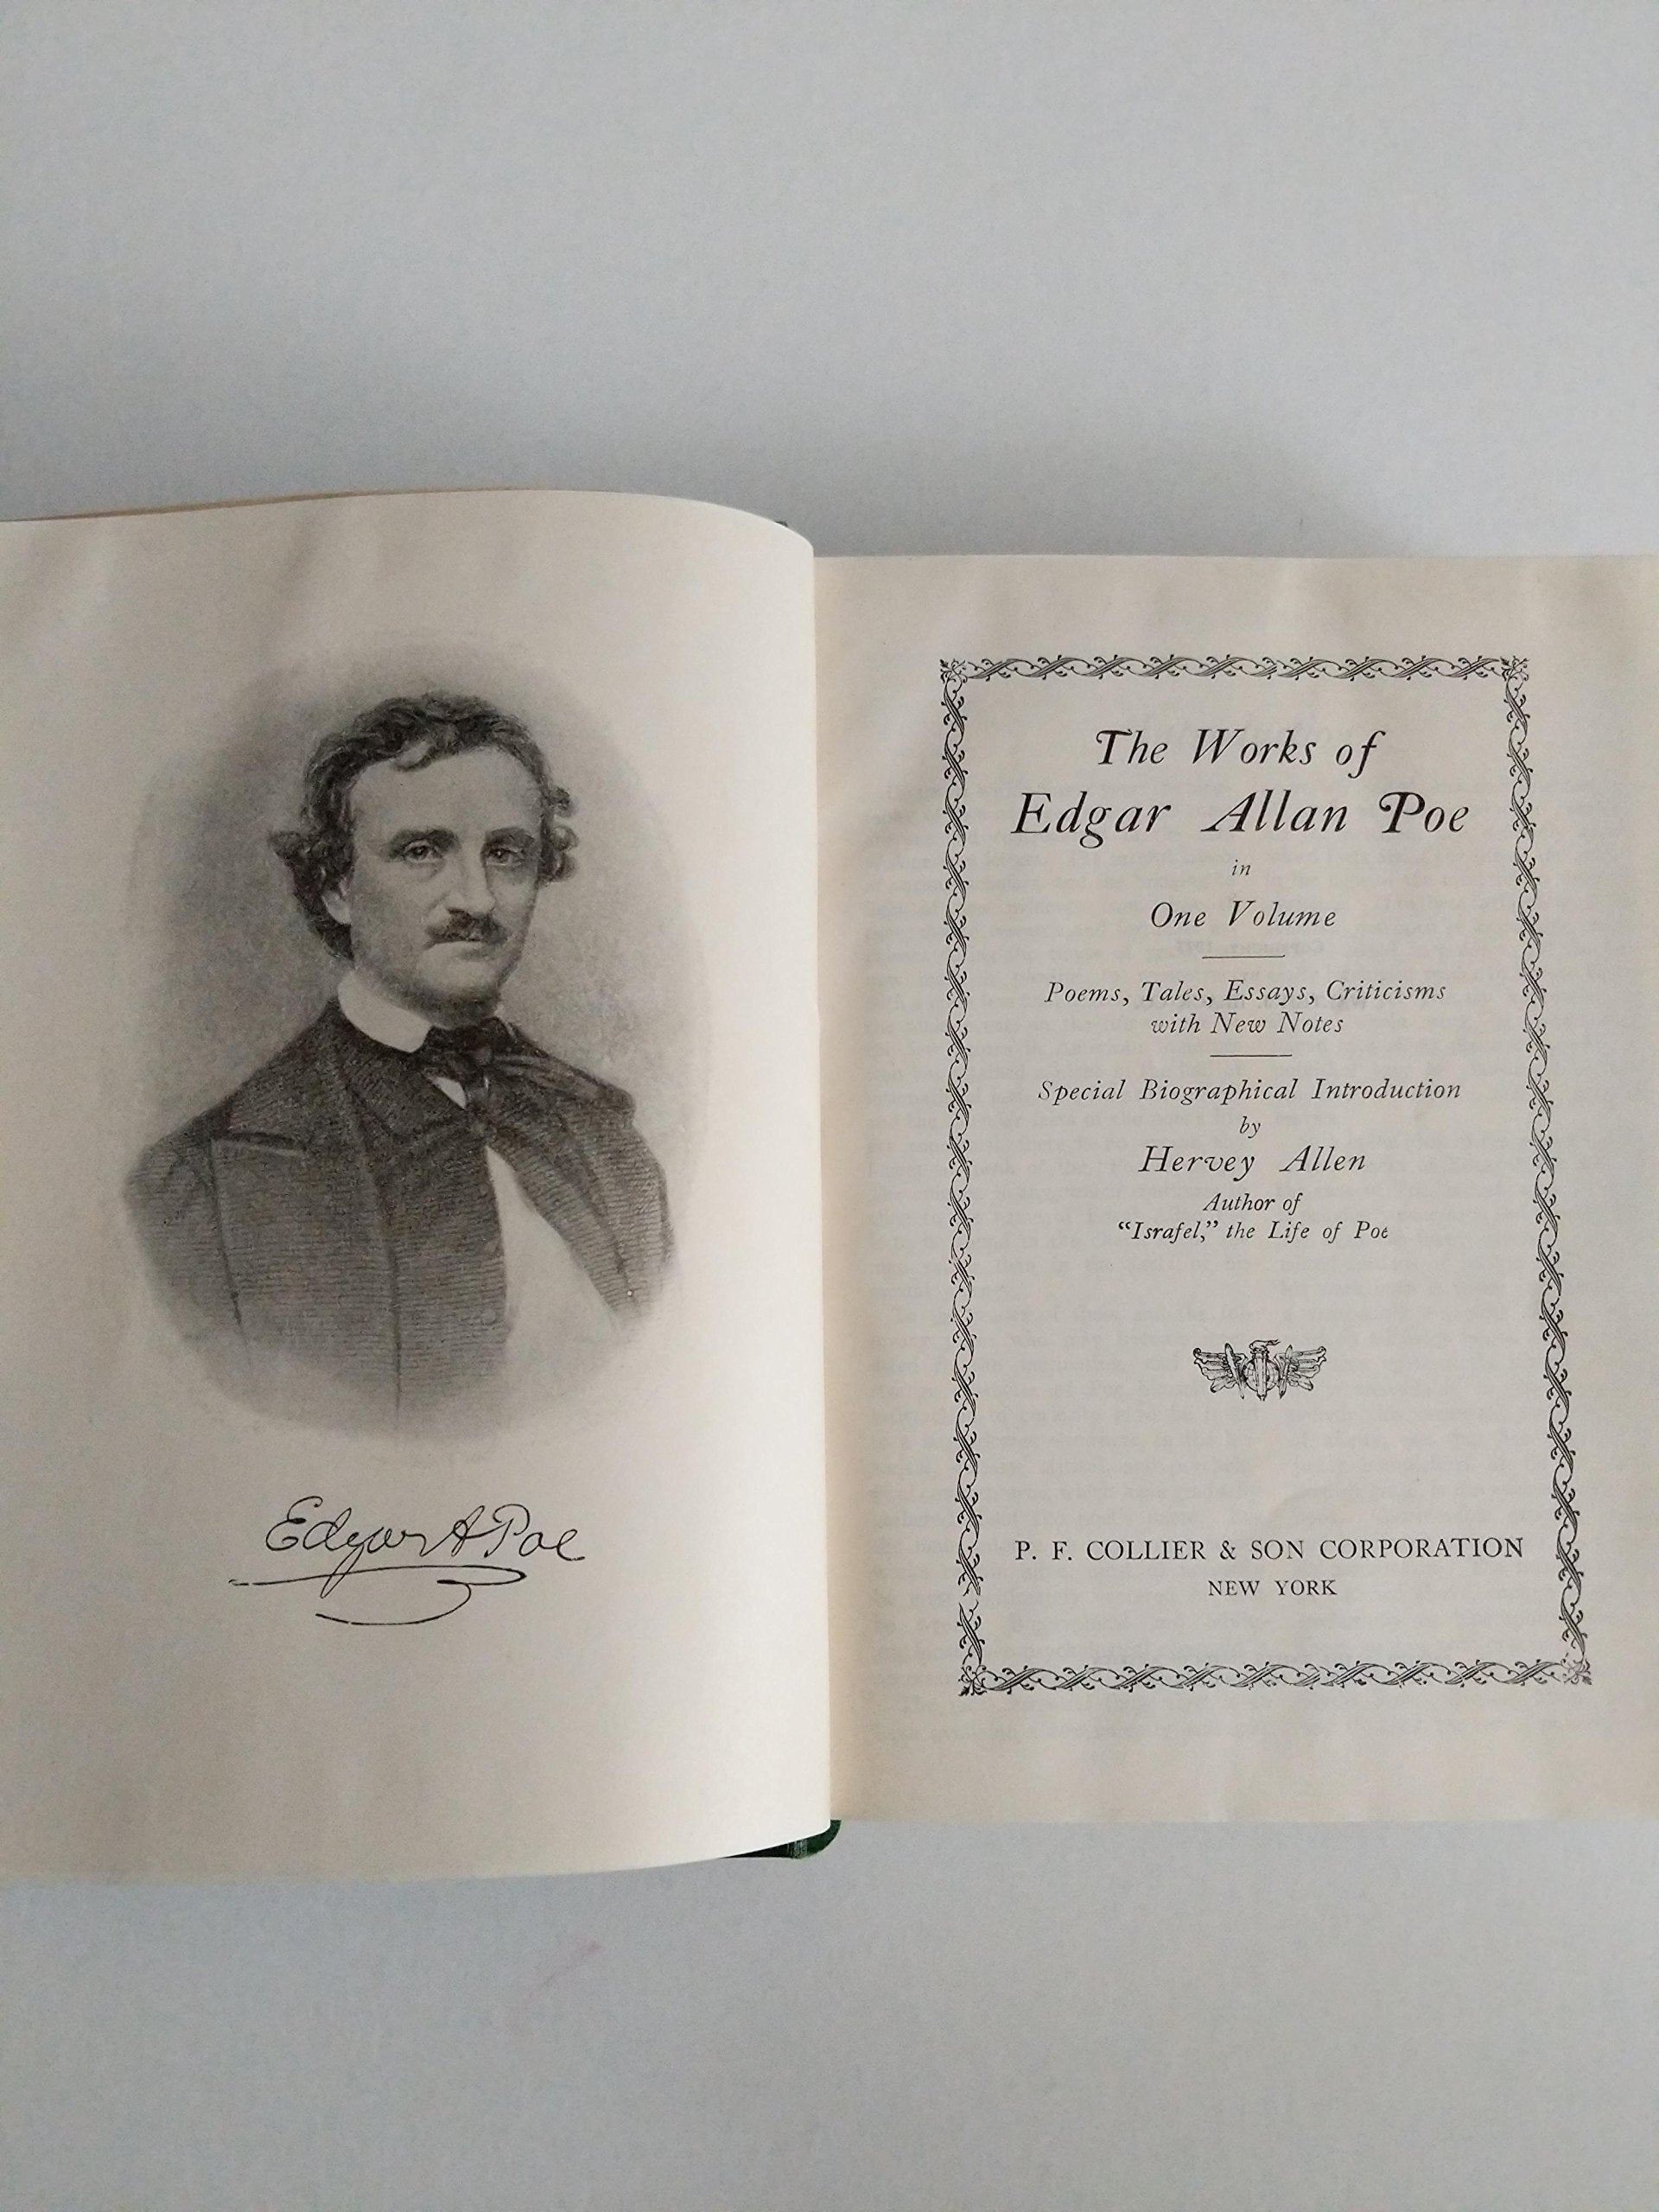 Edgar A Poe
The Works of
Edgar Allan Poe
in
One Volume
Poems, Tales, Essays, Criticisms
with New Notes
Special Biographical Introduction
by
Hervey Allen
Author of
“Israfel,” the Life of Poe
P. F. COLLIER & SON CORPORATION
NEW YORK